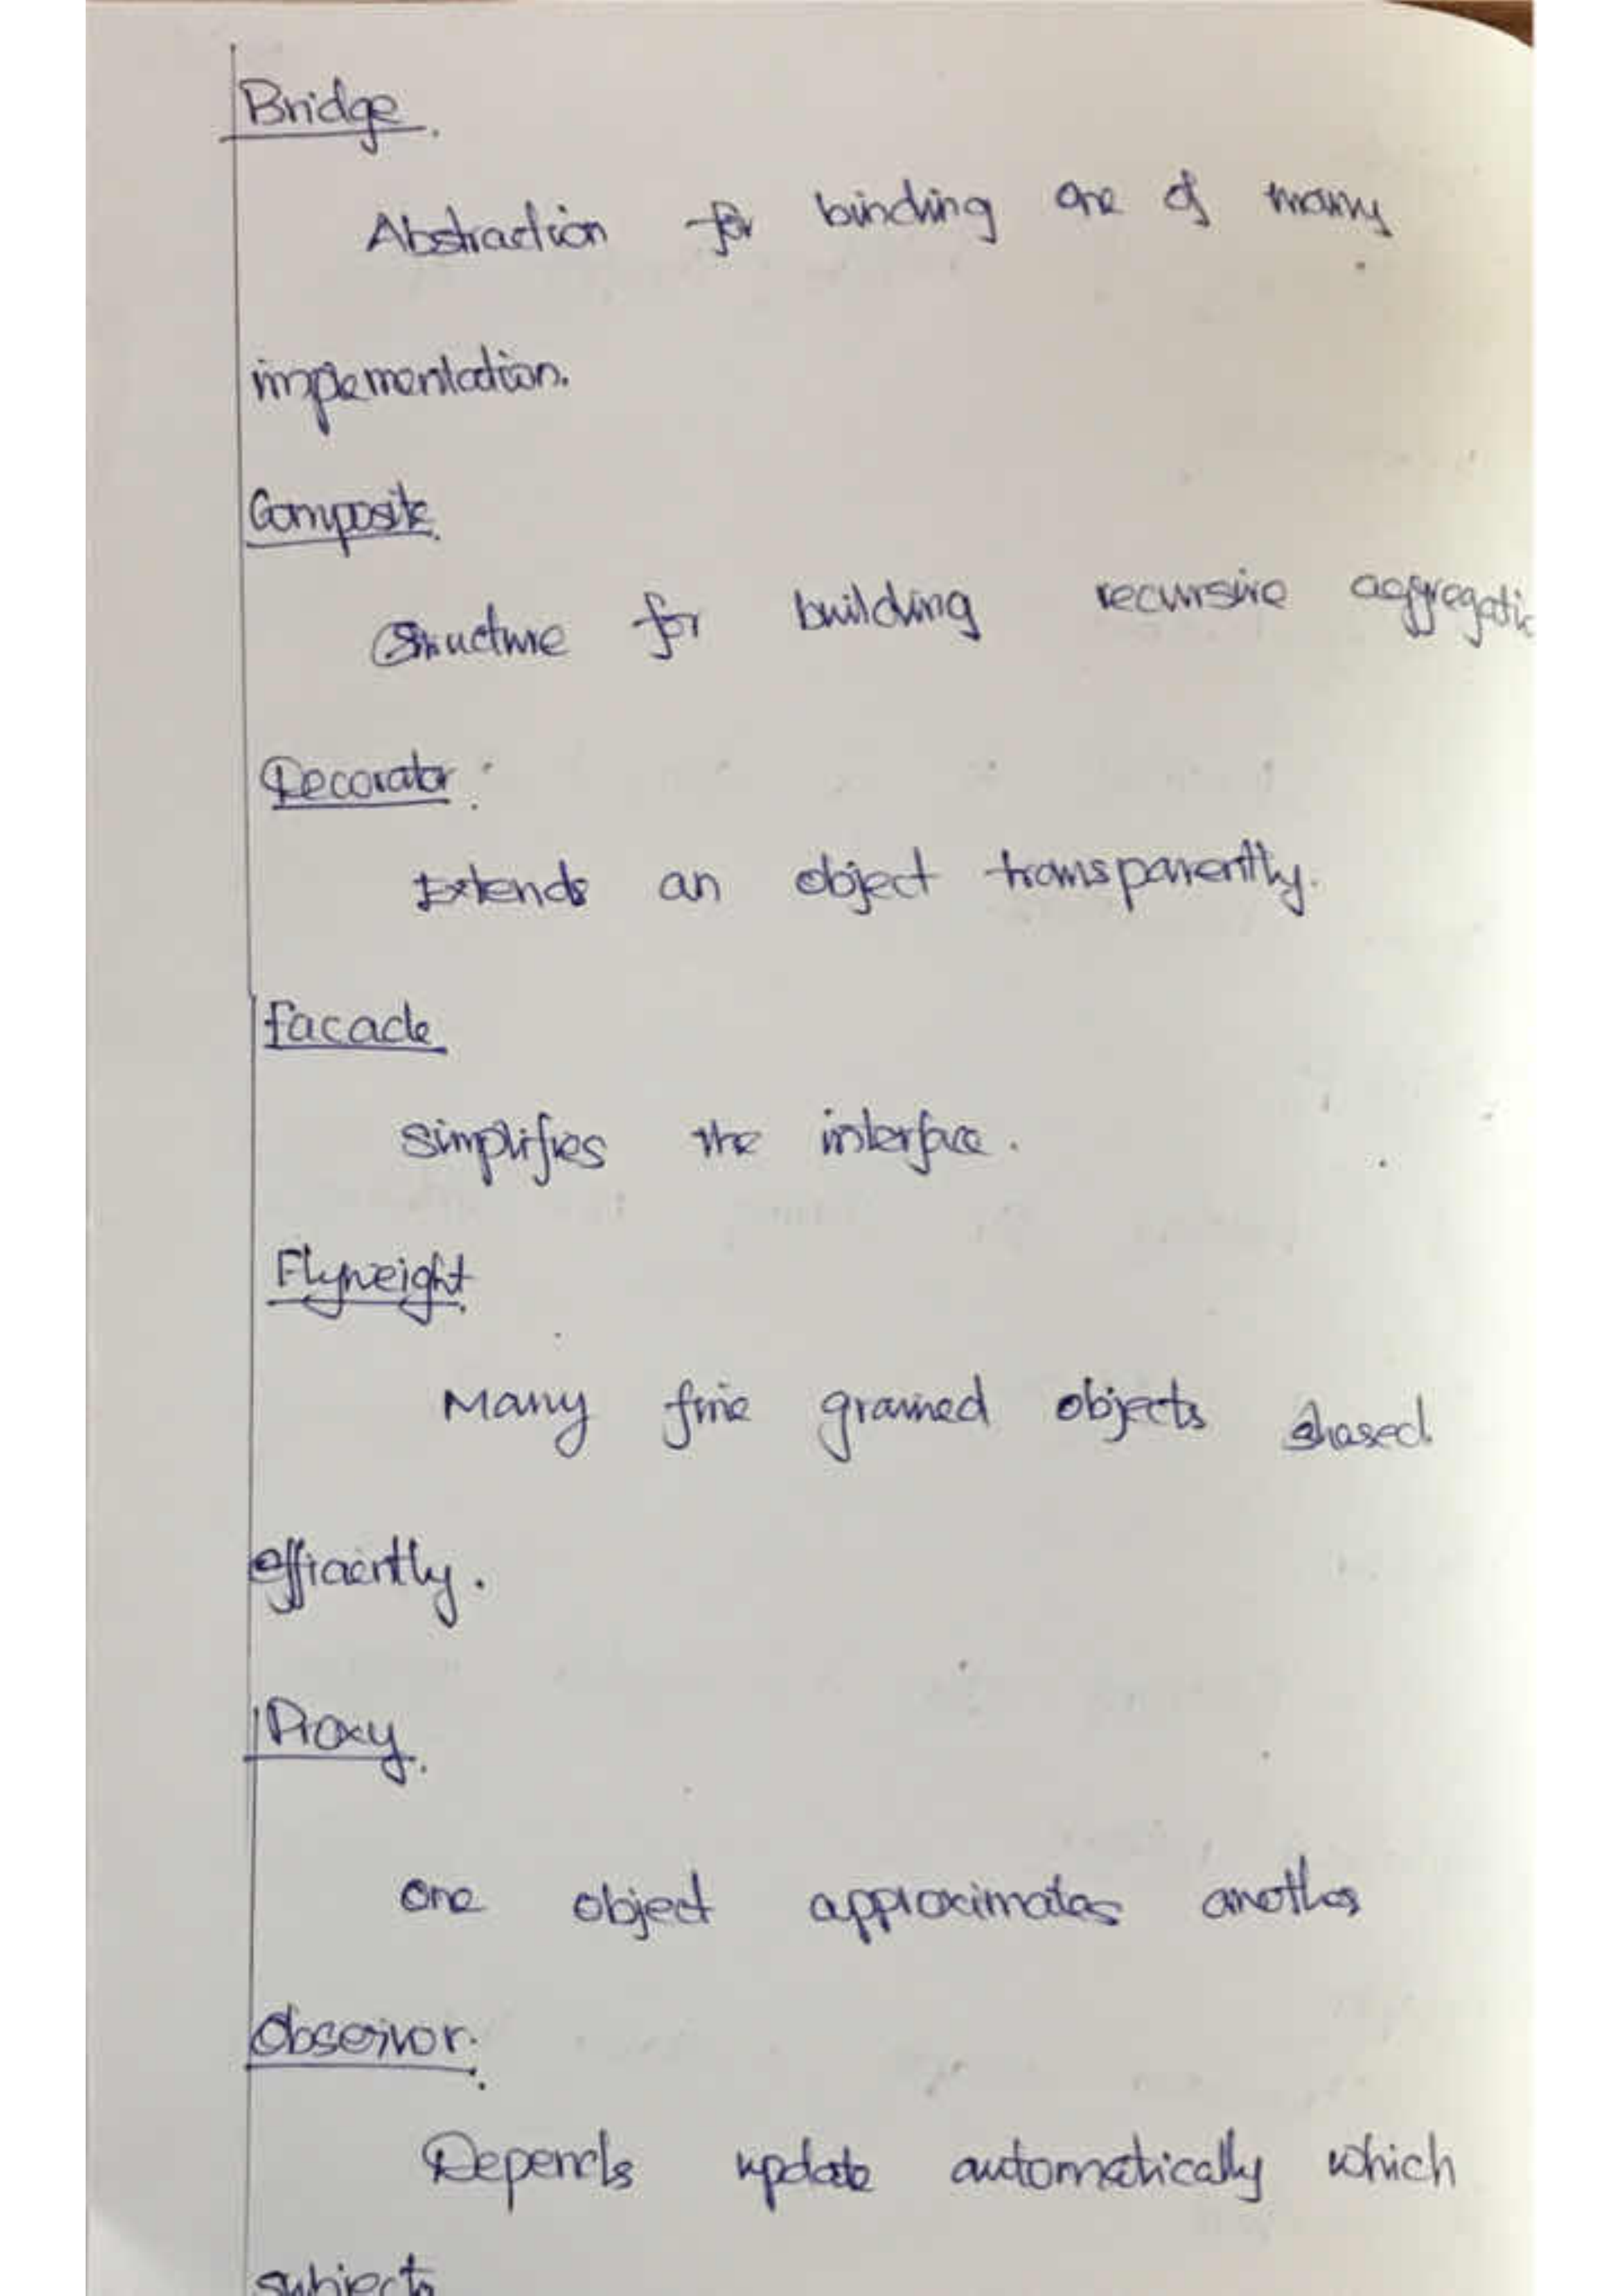 Bridge.
Abstraction for binding one of many
impementation.
Composite.
Structure for building recursive aggregatio
Decorator:
Extends an object transparently.
facade
simplifies the interface.
Flyweight.
Many fine grained objects shased
efficiently.
Proxy.
one object approximates another
Observor.
Depends update automatically which
subjects